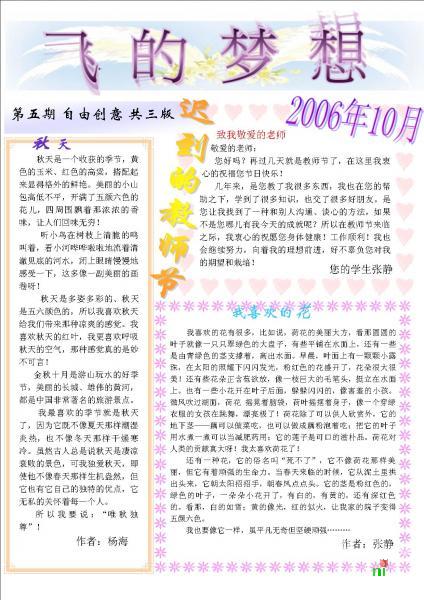 飞的梦想
第五期 自由创意 共三版
2006年10月
秋天
秋天是一个收获的季节，黄
色的玉米、红色的高粱，搭配起
来显得格外的鲜艳。美丽的小山
包高低不平，开满了五颜六色的
花儿，四周围飘着那浓浓的香
味，让人们回味无穷！
听小鸟在树枝上清脆的鸣
叫着，看小河哗啦啦地流着清
澈见底的河水，闭上眼睛慢慢地
感受一下，这多像一副美丽的画
卷呀！
秋天是多姿多彩的、秋天
是五六颜色的，所以我喜欢秋天
给我们带来那种凉爽的感觉。我
喜欢秋天的红叶，我更喜欢呼吸
秋天的空气，那种感觉真的是妙
不可言！
金秋十月是游山玩水的好季
节，美丽的长城、雄伟的黄河，
都是中国非常著名的旅游景点。
我最喜欢的季节就是秋天
了，因为它既不像夏天那样潮湿
炎热，也不像冬天那样干燥寒
冷。虽然古人总是说秋天是凄凉
衰败的景色，可我独爱秋天，即
使他不像春天那样生机盎然，但
它也有它自己的独特的优点，它
无私的关怀着每一个人。
所以我要说：“唯秋独
尊”！
作者：杨海
迟到的教师节
致我敬爱的老师
敬爱的老师：
您好吗？再过几天就是教师节了，在这里我衷
心的祝福您节日快乐！
几年来，是您教了我很多东西，我也在您的帮
助之下，学到了很多知识，也交了很多好朋友。是
您让我找到了一种和别人沟通、谈心的方法，如果
不是您哪儿有我今天的成就呢？所以在教师节来临
之际，我衷心的祝愿您身体健康！工作顺利！我也
会继续努力，向着我的理想前进，好不辜负您对我
的期望和栽培！
您的学生张静
我喜欢的花
我喜欢的花有很多，比如说，荷花的美丽大方，看那圆圆的
叶子就像一只只翠绿色的大盘子，有些平铺在水面上，还有一些
是由青绿色的茎支撑着，高出水面。早晨，叶面上有一颗颗小露
珠，在太阳的照耀下闪闪发光，粉红色的花盛开了，花朵很大很
美！还有些花朵正含苞欲放，像一枝巨大的毛笔头，挺立在水面
上。也有一些小花开在叶子后面，躲躲闪闪的，像害羞的小孩，
微风吹过湖面，荷花 摇晃着脑袋，荷叶摇摆着身子，像一个穿绿
衣服的女孩在跳舞，漂亮极了！荷花除了可以供人欣赏外，它的
地下茎——藕可以做菜吃，也可以做成藕粉泡着吃；把它的叶子
用水煮一煮可以当减肥药用；它的莲子是可口的滋补品。荷花对
人类的贡献真大呀！我太喜欢荷花了！
还有一种花，它的俗名叫“死不了”，它不像荷花那样美
丽，但它有着顽强的生命力。当春天来临的时候，它从泥土里拱
出头来，它朝太阳招招手，朝春风点点头。它的茎是粉红色的。
绿色的叶子，一朵朵小花开了，有白的、有黄的，还有深红色
的。看那，白的如雪；黄的像光，红的似火，让我家的院子变得
五颜六色。
我也要像它一样，虽平凡无奇但坚硬顽强………
作者：张静
ni